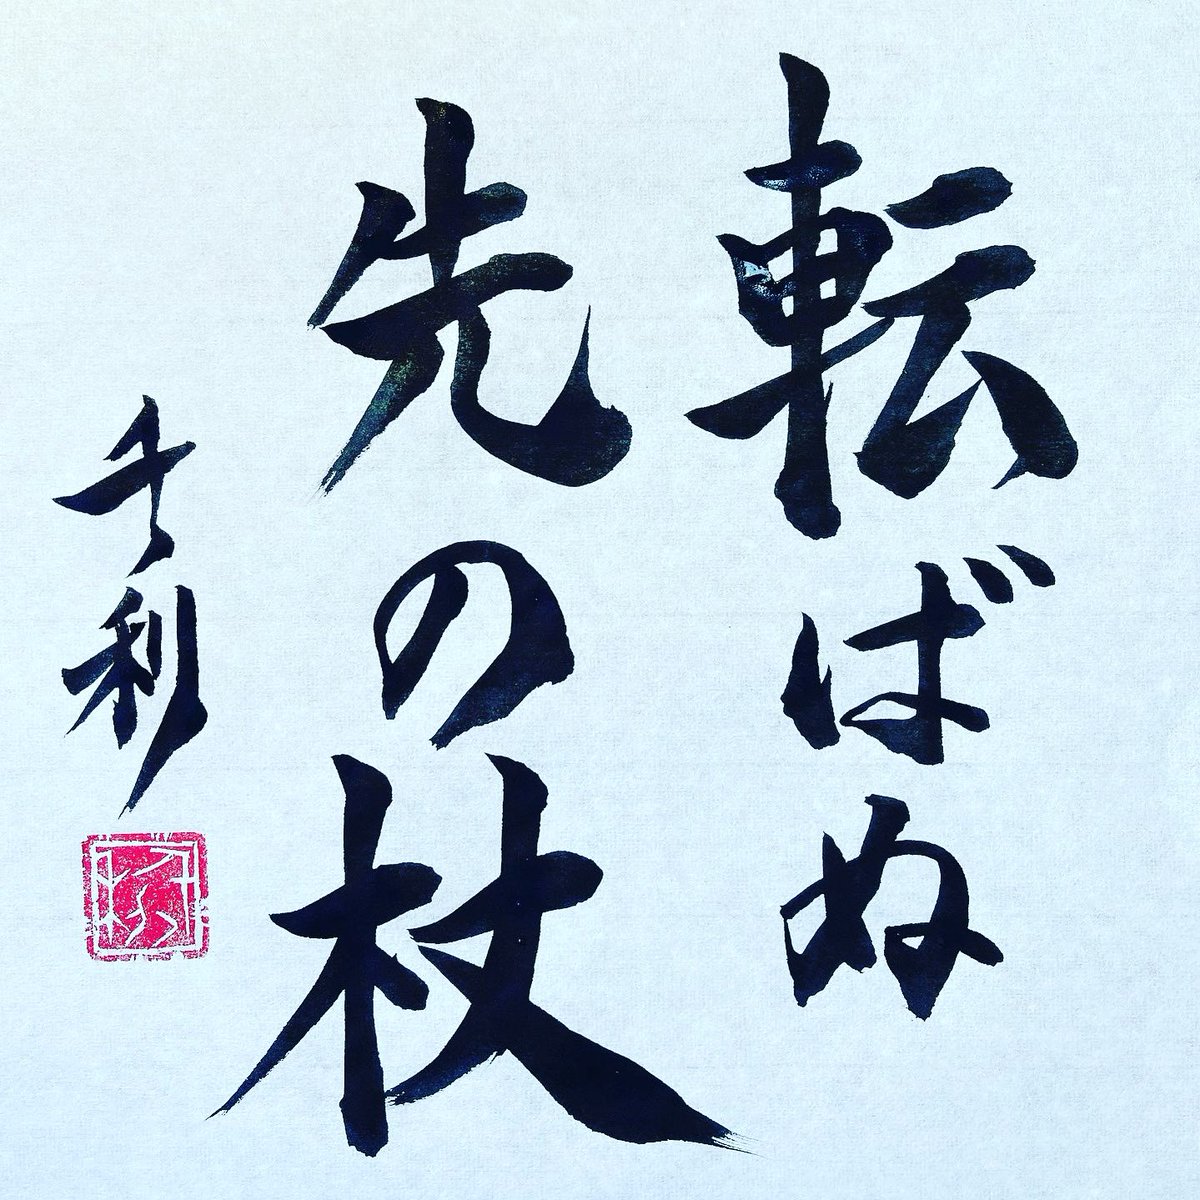 転ばぬ
先の杖
千利